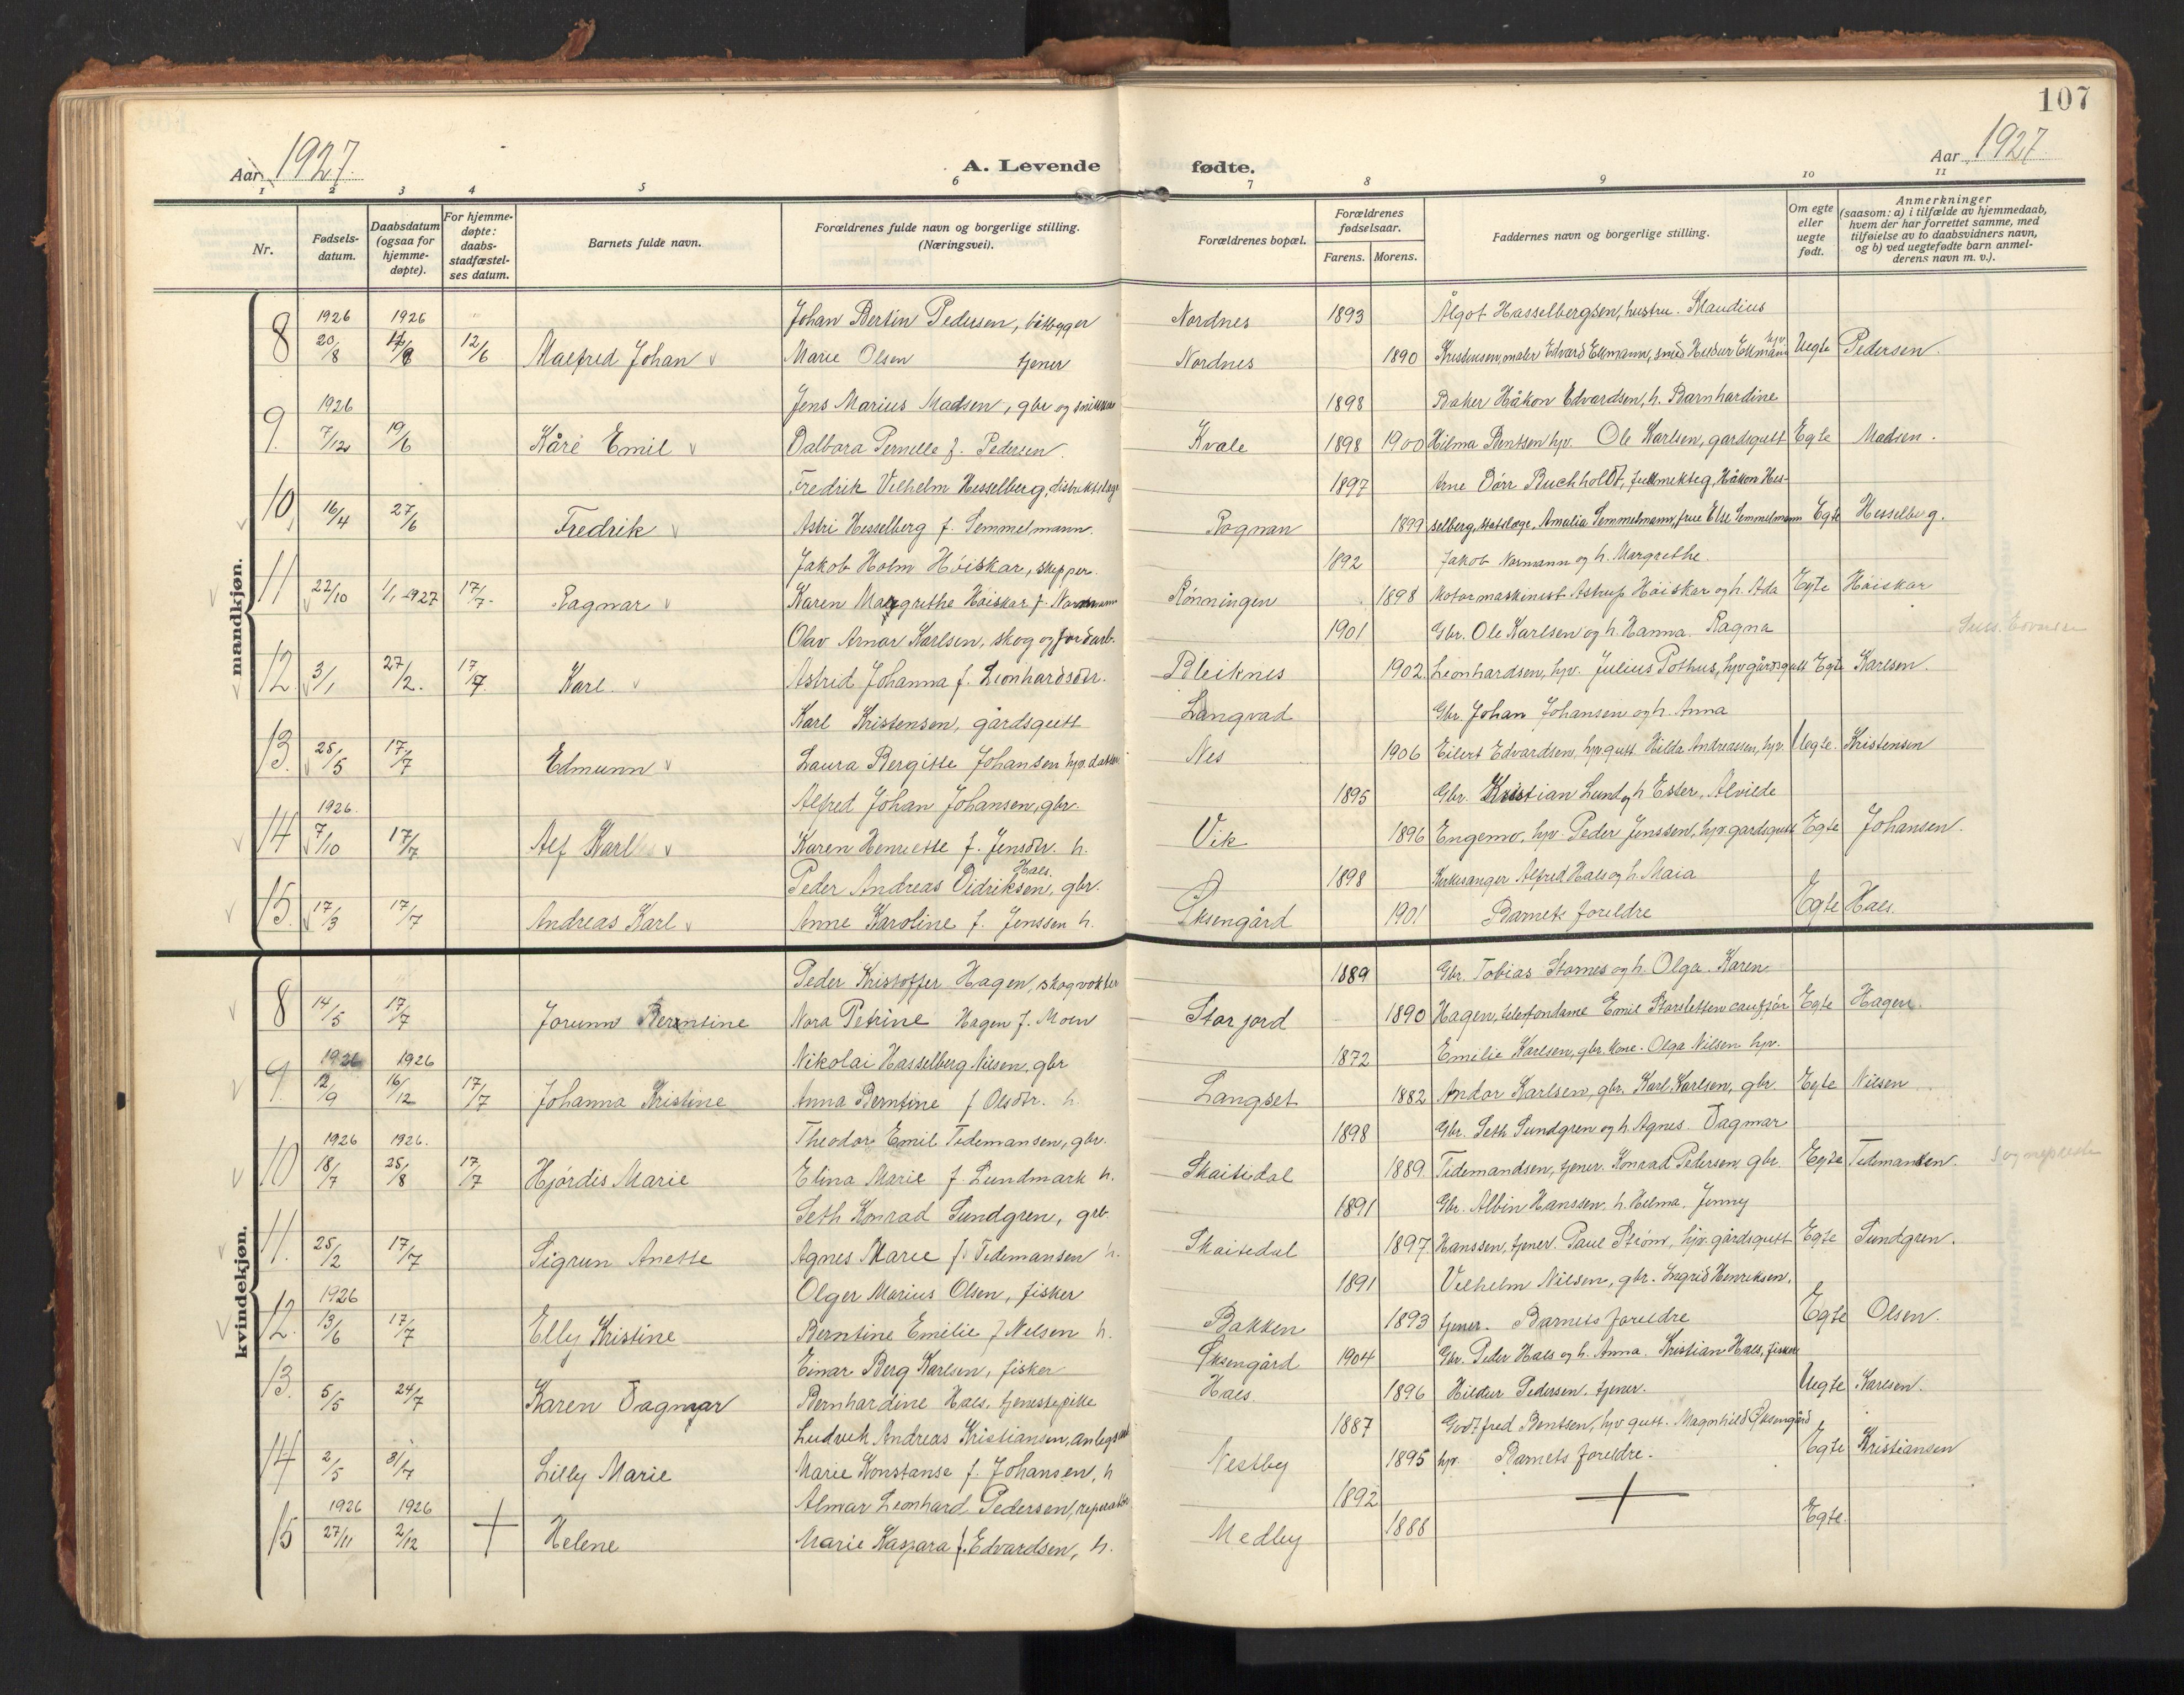 107
Aar 1927.
A. Levende
fødte.
Aar 1927.
1 2 3 4 5 6 7 8 9 10 11
Nr.
Fødsels-
datum.
Daabsdatum
(ogsaa for
hjemme-
døpte).
For hjemme-
døpte:
daabs-
stadfæstel-
ses datum.
Barnets fulde navn.
Forældrenes fulde navn og borgerlige stilling.
(Næringsvei).
Forældrenes bopæl.
Forældrenes
fødselsaar.
Farens. Morens.
Faddernes navn og borgerlige stilling.
Om egte
eller
uegte
født.
Anmerkninger
(saasom: a) i tilfælde av hjemmedaab,
hvem der har forrettet samme, med
tilføielse av to daabsvidners navn,
og b) ved uegtefødte barn anmel-
derens navn m. v.).
mandkjøn.
1926 1926 Johan Bertin Pedersen, båtbygger Nordnes 1893 Algot Hasselbergsen, hustru. Klaudius
8 20/8 12/6 Malfred Johan Marie Olsen tjener Nordnes 1890 Kristensen, maler Edvard Ellmann, smed Heidur Ellmann hv. Uegte Pedersen.
1926 Jens Marius Madsen, gbr og snikker 1898 Baker Håkon Edvardsen, h. Barnhardine
9. 7/12 19/6 Kåre Emil Dalbara Pernelle f. Pedersen. Kvale 1898 1900 Hilma Bentsen hjv. Ole Karlsen, gardsgutt Egte Madsen.
Fredrik Vilhelm Hesselberg, distriktslæge 1897 Arne Dørr Buchholdt, fullmektig, Håkon Hes-
10 16/4 27/6 Fredrik Astri Hesselberg f. Semmelmann. Rognan 1899 selberg, statslæge, Amalia Semmelmann, frue Else Semmelmann Egte Hesselberg.
Jakob Holm Høiskar, skipper. 1892 Jakob Normann og h. Margrethe.
11 22/10 1/1-1927 17/7- Ragnar Karen Margrethe Høiskar f. Normann Rønningen 1898 Motormaskinist Astrup Høiskar og h. Ada Egte Høiskar
Olav Arnar Karlsen, skog og jordarb. 1901 Gbr. Ole Karlsen og h. Hanna. Ragna
12 3/1 27/2. 17/7 Karl. Astrid Johanna f. Leonhardsdtr. Bleiknes 1902. Leonhardsen, hjv. Julius Pothus, hjv. gårdsgutt Egte Karlsen.
Karl Kristensen, gårdsgutt Langvad Gbr. Johan Johansen og h. Anna
13. 25/5 17/7 Edmunn Laura Bergitte Johansen hjv. datter Nes 1906 Eilert Edvardsen, hjv. gutt. Hilda Andreassen, hjv. Uegte. Kristensen
1926. Alfred Johan Johansen, gbr. 1895 Gbr. Kristian Lund og h Ester, Alvilde
14 7/10 17/7 Alf Karl Karen Henriette f. Jensdtr. h. Vik 1896 Engemo, hjv. Peder Jenssen, hjv. gardsgutt Egte Johansen.
Peder Andreas Didriksen Hals, gbr. 1898 Kirkesanger Alfred Hals og h. Maia
15. 17/3 17/7 Andreas Karl Anne Karoline f. Jenssen h. Øksengård 1901 Barnets foreldre Egte Hals.
kvindekjøn.
Peder Kristoffer Hagen, skogvokter 1889 Gbr. Tobias Stornes og h. Olga. Karen
8 14/5 17/7 Jorunn Berntine Nora Petrine Hagen f. Moen Storjord 1890 Hagen, telefondame Emil Storsletten Egte Hagen.
1926 1926 Nikolai Hasselberg Nilsen, gbr 1872 Emilie Karlsen, gbr. kone. Olga Nilsen hjv.
9. 12/9 16/12 17/7 Johanna Kristine Anna Berntine f Olsdtr. h. Langset 1882 Andor Karlsen, gbr. Karl Karlsen, gbr. Egte Nilsen
1926 1926. Theodor Emil Tidemansen, gbr. 1898 Gbr. Seth Sundgren og h. Agnes. Dagmar
10 18/7 25/8 17/7 Hjørdis Marie Elina Marie f. Lundmark h. Skaitidal 1889. Tidemandsen, tjener. Konrad Pedersen gbr. Egte Tidemansen.
Seth Konrad Sundgren, grb. 1891 Gbr. Albin Hanssen. h. Hilma. Jenny
11. 25/2 17/7 Sigrun Anette Agnes Marie f. Tidemansen h. Skaitidal 1897. Hanssen, tjener. Paul Strøm, hjv. gårdsgutt Egte Sundgren.
1926 Olger Marius Olsen, fisker 1891 Vilhelm Nilsen, gbr. Ingrid Henriksen,
12. 13/6 17/7 Elly Kristine Berntine Emilie f Nilsen h. Bakken 1893 tjener. Barnets foreldre Egte Olsen.
Einar Berg Karlsen, fisker Øksengård 1904 Gbr. Peder Hals og h. Anna. Kristian Hals, fisker
13. 5/5 24/7 Karen Dagmar Bernhardine Hals, tjenestepike Hals. 1896 Hildur Pedersen. tjener. Uegte Karlsen.
Ludvik Andreas Kristiansen, anlegsarb 1887 Godtfred Bentsen, hjv gutt. Magnhild Øksengård
14 2/5 31/7 Lilly Marie Marie Konstanse f. Johansen, h Nestby 1895 hjv. Barnets foreldre. Egte Kristiansen
1926 1926 Almar Leonhard Pedersen, reparatør 1892
15 27/11 2/12 Helene Marie Kaspara f. Edvardsen, h. Medby 1888 Egte.